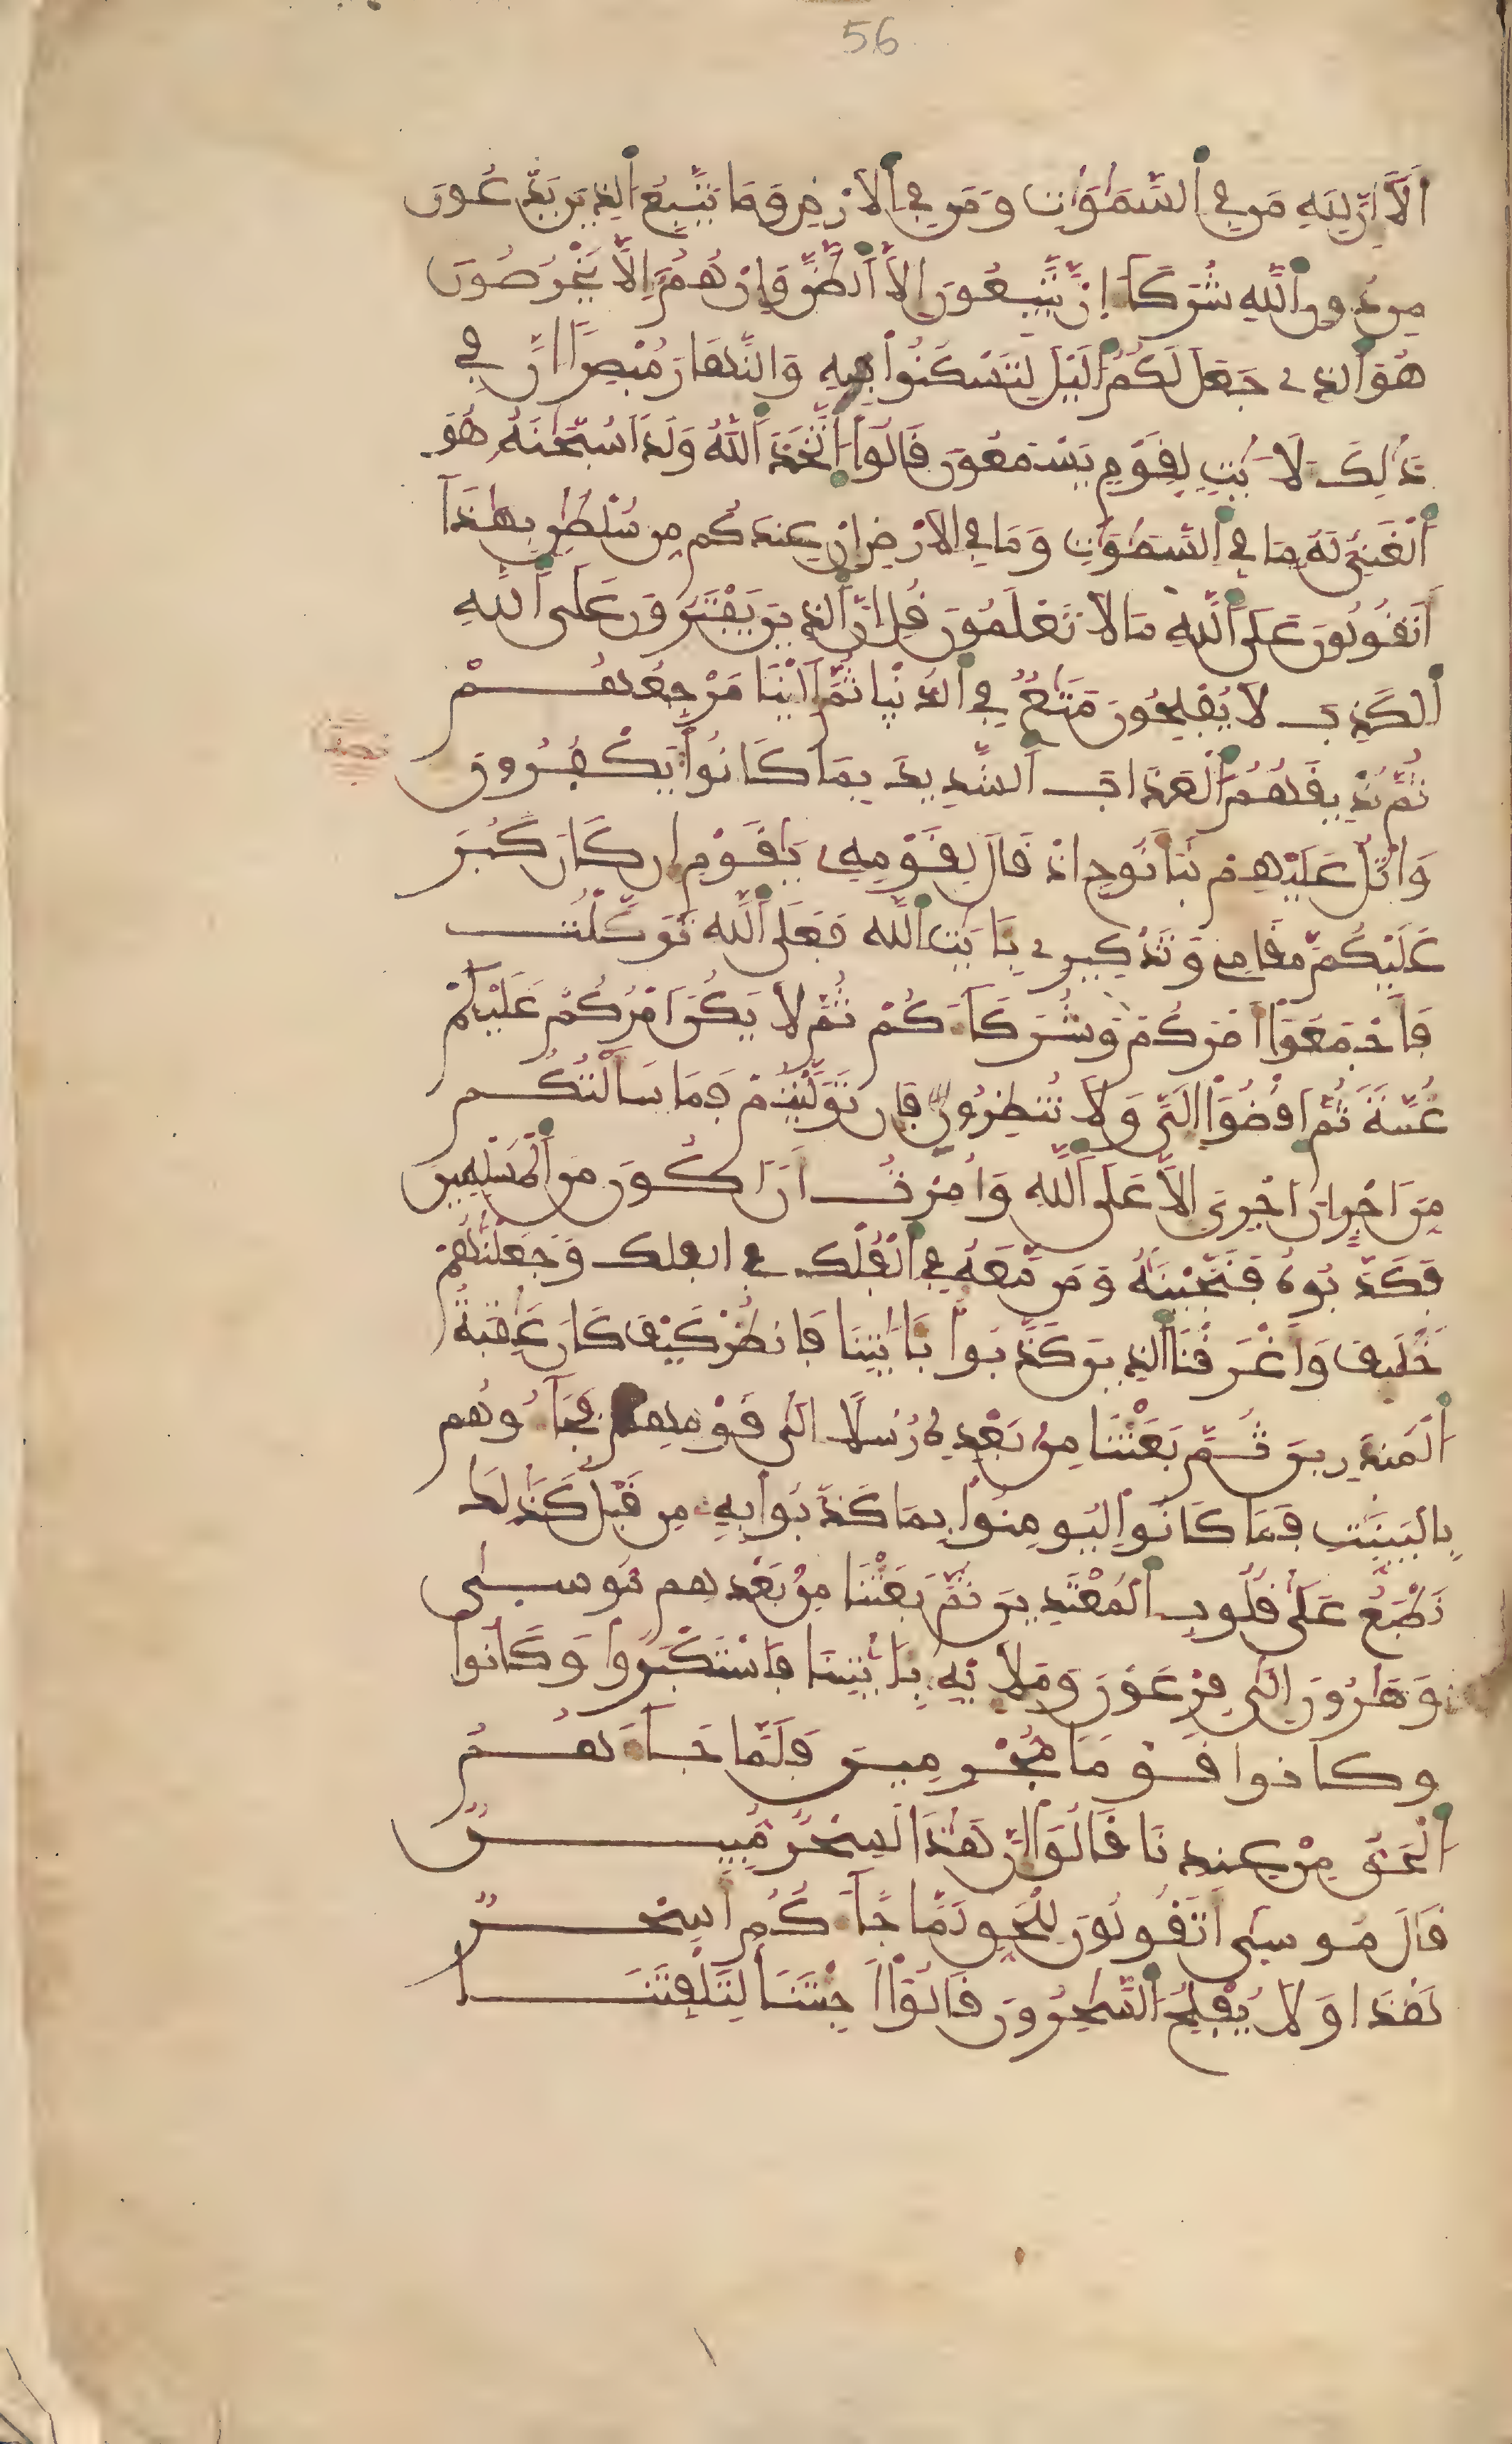 56
أَلَآ إِنَّ لِلهِ مَن فِي اَلسَّمَٰوَٰتِ وَمَن فِي اَلَارْضِ وَمَا يَتَّبِعُ اَلذِينَ يَدْعُونَ
مِن دُونِ اِللَّهِ شُرَكَآءَ إِنْ يَّتَّبِعُونَ إِلَّا اَلظَّنَّ وَإِنْ هُمُ إِلَّا يَخْرُصُونَ
هُوَ اَلذِے جَعَلَ لَكُمُ اُليْلَ لِتَسْكُنُواْ فِيهِ وَالنَّهَارَ مُبْصِراً اِنَّ فِي
ذَٰلِكَ لَأٓيَٰتٖ لِقَوْمٖ يَسْمَعُونَ قَالُواْ اُتَّخَذَ اَللَّهُ وَلَداً سُبْحَٰنَهُۥ هُوَ
اَلْغَنِيُّ لَهُۥ مَا فِي اِلسَّمَٰوَٰتِ وَمَا فِي الَارْضِ إِنْ عِندَكُم مِّن سُلْطَٰنِۢ بِهَٰذَآ
أَتَقُولُونَ عَلَى اَللَّهِ مَا لَا تَعْلَمُونَ قُلِ انَّ اَلذِينَ يَفْتَرُونَ عَلَى اَللَّهِ
اِلْكَذِبَ لَا يُفْلِحُونَ مَتَٰعٌ فِي اِلدُّنْيَا ثُمَّ إِلَيْنَا مَرْجِعُهُمْ
ثُمَّ نُذِيقُهُمُ اُلْعَذَابَ اَلشَّدِيدَ بِمَا كَانُواْ يَكْفُرُونَ
نصف
وَاتْلُ عَلَيْهِمْ نَبَأَ نُوحٍ اِذْ قَالَ لِقَوْمِهِۦ يَٰقَوْمِ إِن كَانَ كَبُرَ
عَلَيْكُم مَّقَامِے وَتَذْكِيرِے بِـَٔايَٰتِ اِللَّهِ فَعَلَى اَللَّهِ تَوَكَّلْتُ
فَأَجْمِعُوٓاْ أَمْرَكُمْ وَشُرَكَآءَكُمْ ثُمَّ لَا يَكُنَ اَمْرُكُمْ عَلَيْكُمْ
غُمَّةً ثُمَّ اَقْضُوٓاْ إِلَيَّ وَلَا تُنظِرُونِ فَإِن تَوَلَّيْتُمْ فَمَا سَأَلْتُكُم
مِّنَ اَجْرٍ اِنَ اَجْرِيَ إِلَّا عَلَى اَللَّهِ وَأُمِرْتُ أَنَ اَكُونَ مِنَ اَلْمُسْلِمِينَ
فَكَذَّبُوهُ فَنَجَّيْنَٰهُ وَمَن مَّعَهُۥ فِي اِلْفُلْكِ في الفلك وَجَعَلْنَٰهُمْ
خَلَٰٓئِفَ وَأَغْرَقْنَا اَلذِينَ كَذَّبُواْ بِـَٔايَٰتِنَا فَانظُرْ كَيْفَ كَانَ عَٰقِبَةُ
اُلْمُنذَرِينَ ثُمَّ بَعَثْنَا مِنۢ بَعْدِهِۦ رُسُلاً اِلَىٰ قَوْمِهِمْ فَجَآءُوهُم
بِالْبَيِّنَٰتِ فَمَا كَانُواْ لِيُومِنُواْ بِمَا كَذَّبُواْ بِهِۦ مِن قَبْلُ كَذَٰلِكَ
نَطْبَعُ عَلَىٰ قُلُوبِ اِلْمُعْتَدِينَ ثُمَّ بَعَثْنَا مِنۢ بَعْدِهِم مُّوسَىٰ
وَهَٰرُونَ إِلَىٰ فِرْعَوْنَ وَمَلَإِيْهِۦ بِـَٔايَٰتِنَا فَاسْتَكْبَرُواْ وَكَانُواْ
وكانوا قَوْماً مُّجْرِمِينَ فَلَمَّا جَآءَهُمُ
اُلْحَقُّ مِنْ عِندِنَا قَالُوٓاْ إِنَّ هَٰذَا لَسِحْرٌ مُّبِينٌ
قَالَ مُوسَىٰٓ أَتَقُولُونَ لِلْحَقِّ لَمَّا جَآءَكُمُۥٓ أَسِحْرٌ
هَٰذَا وَلَا يُفْلِحُ اُلسَّٰحِرُونَ قَالُوٓاْ أَجِئْتَنَا لِتَلْفِتَنَا